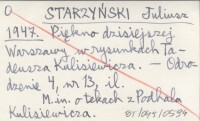 O STARZYŃSKI Juliusz
1947. Piękno dzisiejszej
Warszawy w rysunkach Ta-
deusza Kulisiewicza. - Odro-
dzenie 4, nr 13, il.
M.in. o tekach z Podhala
Kulisiewicza.